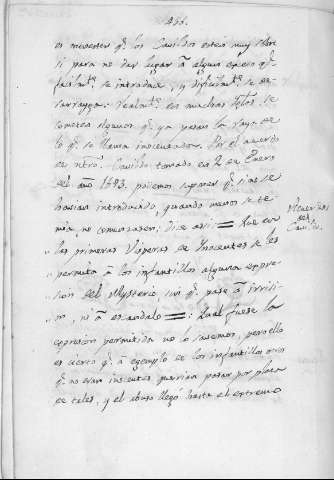 455.
es menester q.e los Cavildos esten muy sobre
si para no dar lugar à algun exceso q.e
facilm.te se introduce, y dificilm.te se de-
sarrayga: realm.te en muchas Yg.as se
cometen algunos q.e ya pasan la raya de
lo q.e se llama inocentadas. Por el acuerdo
de ntro. Cavildo tomado en 2 de Enero
del año 1693. podemos suponer q.e si no se
havian introducido, quando menos se te-
mia, no comenzasen: dice asi: = Que en
" las primeras Visperas de Inocentes se les
" permita à los infantillos alguna expre-
" sion del Mysterio, sin q.e pase à irrisi-
" on, ni à escandalo =: Qual fuese la
expresion permitida no lo savemos, pero ello
es cierto q.e à egemplo de los infantillos otros
q.e no eran inocentes querian pasar por plaza
de tales, y el abuso llegó hasta el extremo
Acuerdos
del
Cavildo.